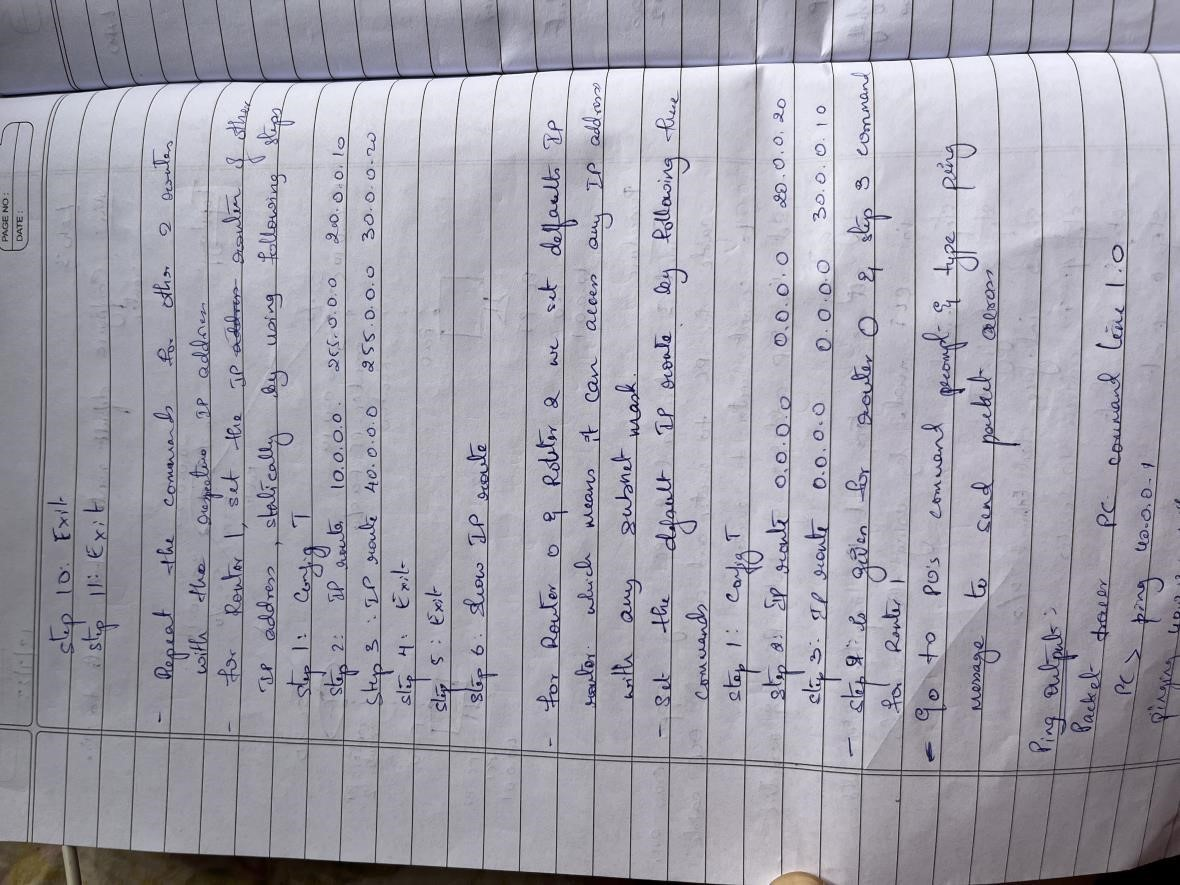 PAGE NO:
DATE:
Step 10: Exit
Step 11: Exit
- Repeat the commands for other 2 routes
with the respective IP address
- for Router 1, set the IP address router of other
IP address, statically by using following steps
Step 1: Config T
Step 2: IP route 10.0.0.0. 255.0.0.0 20.0.0.10
Step 3: IP route 40.0.0.0 255.0.0.0 30.0.0.20
Step 4: Exit
Step 5: Exit
Step 6: Show IP route
- for Router 0 & Router 2 we set default IP
router which means it can access any IP address
with any subnet mask.
- Set the default IP route by following these
commands
Step 1: Config T
Step 2: IP route 0.0.0.0 0.0.0.0 20.0.0.20
Step 3: IP route 0.0.0.0 0.0.0.0 30.0.0.10
- Step 2 is given for router 0 & step 3 command
for Router 1
- go to PC's command prompt & type ping
message to send packet across
Ping output:
Packet tracer PC command line 1.0
PC > ping 40.0.0.1
pinging 40.0.0